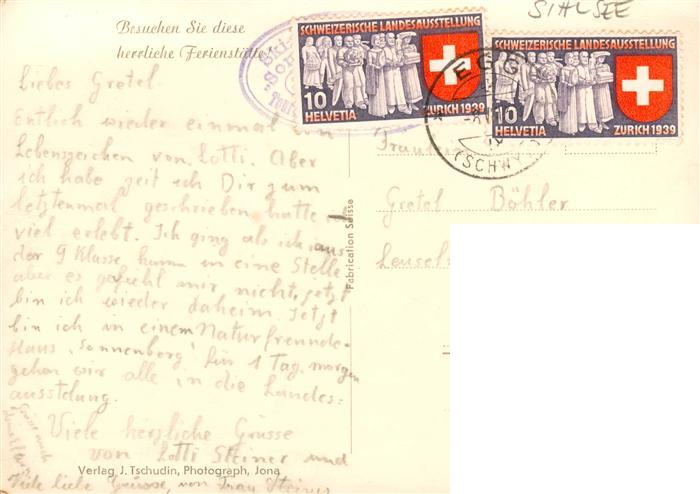 SIHLSEE
Besuchen Sie diese
herrliche Ferienstätte!
SCHWEIZERISCHE LANDESAUSSTELLUNG
10
HELVETIA
ZURICH 1939
SCHWEIZERISCHE LANDESAUSSTELLUNG
10
HELVETIA
ZURICH 1939
EGG
(SCHWYZ)
Liebes Gretel.
Entlich wieder einmal ein
Lebenszeichen von Lotti. Aber
ich habe zeit ich Dir zum
letztenmal geschrieben hatte
viel erlebt. Ich ging als ich aus
der 9 Klasse kamm in eine Stelle
aber es gefiehl mir nicht, jetzt
bin ich wieder daheim. Jetzt
bin ich in einem Naturfreunde-
Haus "Sonnenberg" für 1 Tag, morgen
gehen wir alle in die Landes:
ausstellung.
Viele herzliche Grüsse
von Lotti Steiner und
Viele liebe Grüsse, von Frau Steiner
Verlag J. Tschudin, Photograph, Jona
Fabrication Suisse
Fräulein
Gretel Böhler